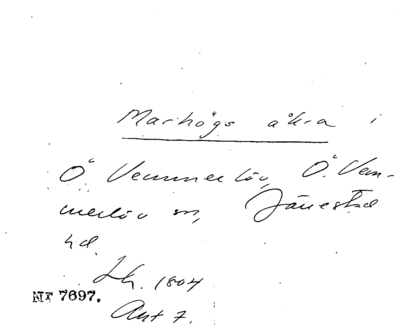 Marhögs åkra i
Ö Vemmerlöv, Ö. Vem-
merlöv sn, Järrestad
hd.
Lh. 1804
Nr 7697.
Ant 7.